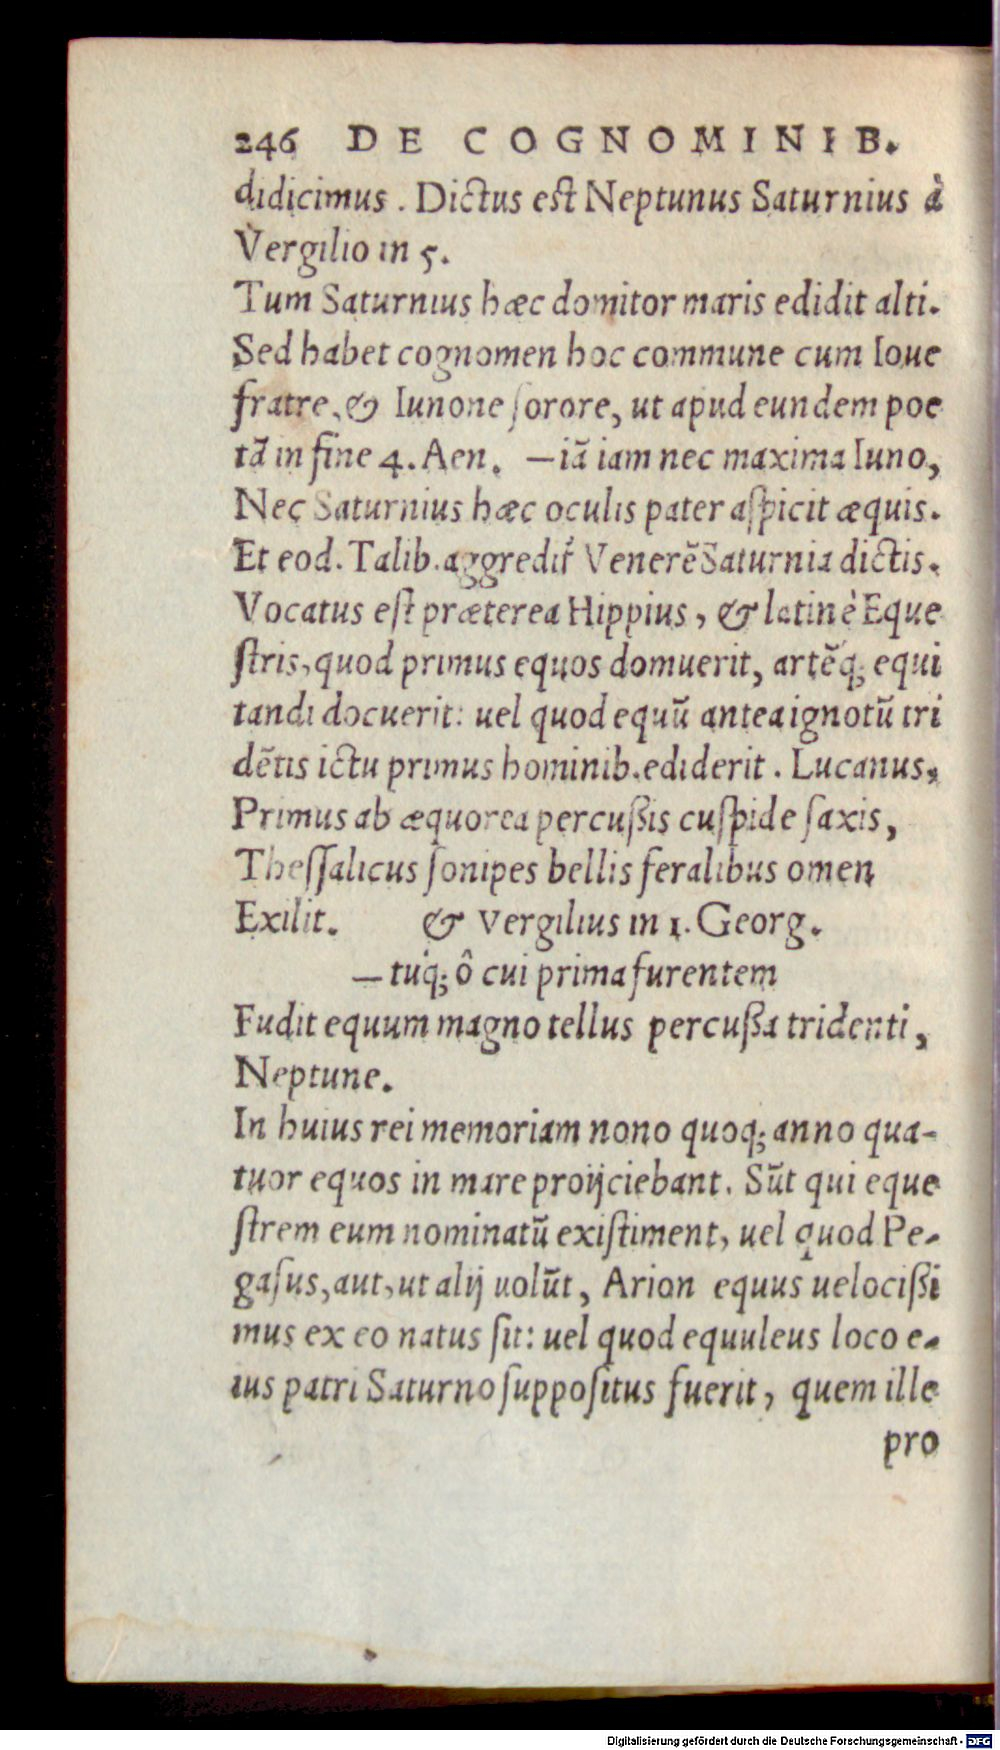 246 DE COGNOMINIB.
didicimus. Dictus est Neptunus Saturnius à
Vergilio in 5.
Tum Saturnius hæc domitor maris edidit alti.
Sed habet cognomen hoc commune cum Ioue
fratre, & Iunone ſorore, ut apud eundem poe
tã in fine 4. Aen. —iã iam nec maxima Iuno,
Nec Saturnius hæc oculis pater aſpicit æquis.
Et eod. Talib. aggredit᷑ Venerẽ Saturnia dictis.
Vocatus eſt præterea Hippius, & latinè Eque
ſtris, quod primus equos domuerit, artẽq; equi
tandi docuerit: uel quod equũ antea ignotũ tri
dẽtis ictu primus hominib. ediderit. Lucanus,
Primus ab æquorea percuſsis cuſpide ſaxis,
Theſſalicus ſonipes bellis feralibus omen
Exilit. & Vergilius in 1. Georg.
—tuq́; ô cui prima furentem
Fudit equum magno tellus percuſsa tridenti,
Neptune.
In huius rei memoriam nono quoq; anno qua-
tuor equos in mare proijciebant. Sũt qui eque
ſtrem eum nominatũ exiſtiment, uel quod Pe-
gaſus, aut, ut alij uolũt, Arion equus uelociſsi
mus ex eo natus ſit: uel quod equuleus loco e-
ius patri Saturno ſuppoſitus fuerit, quem ille
pro
Digitalisierung gefördert durch die Deutsche Forschungsgemeinschaft - DFG